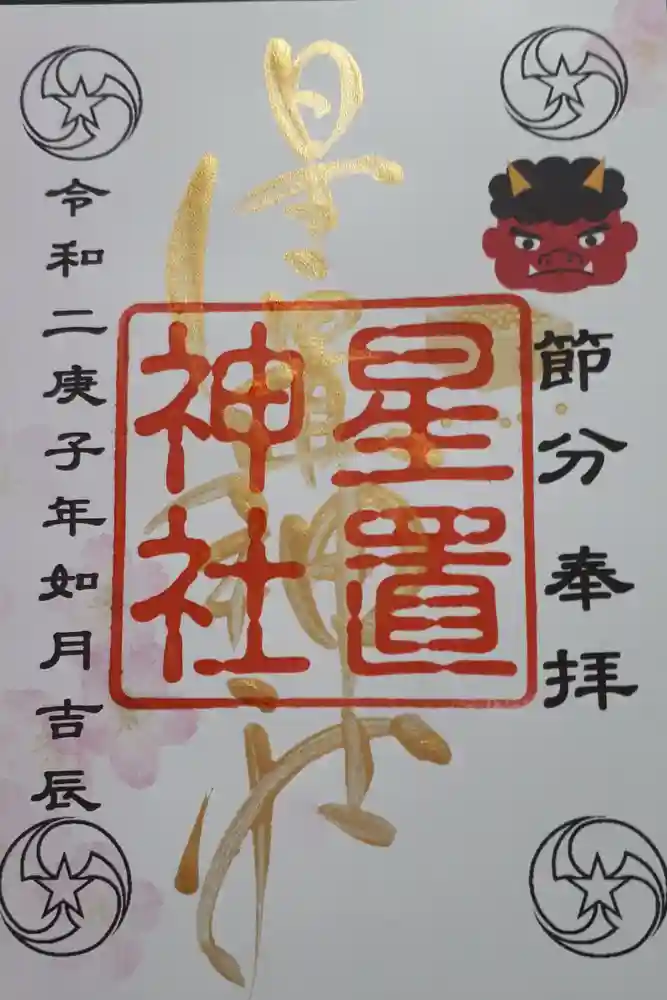 節分 奉拝
星置神社
星置神社
令和二庚子年如月吉辰